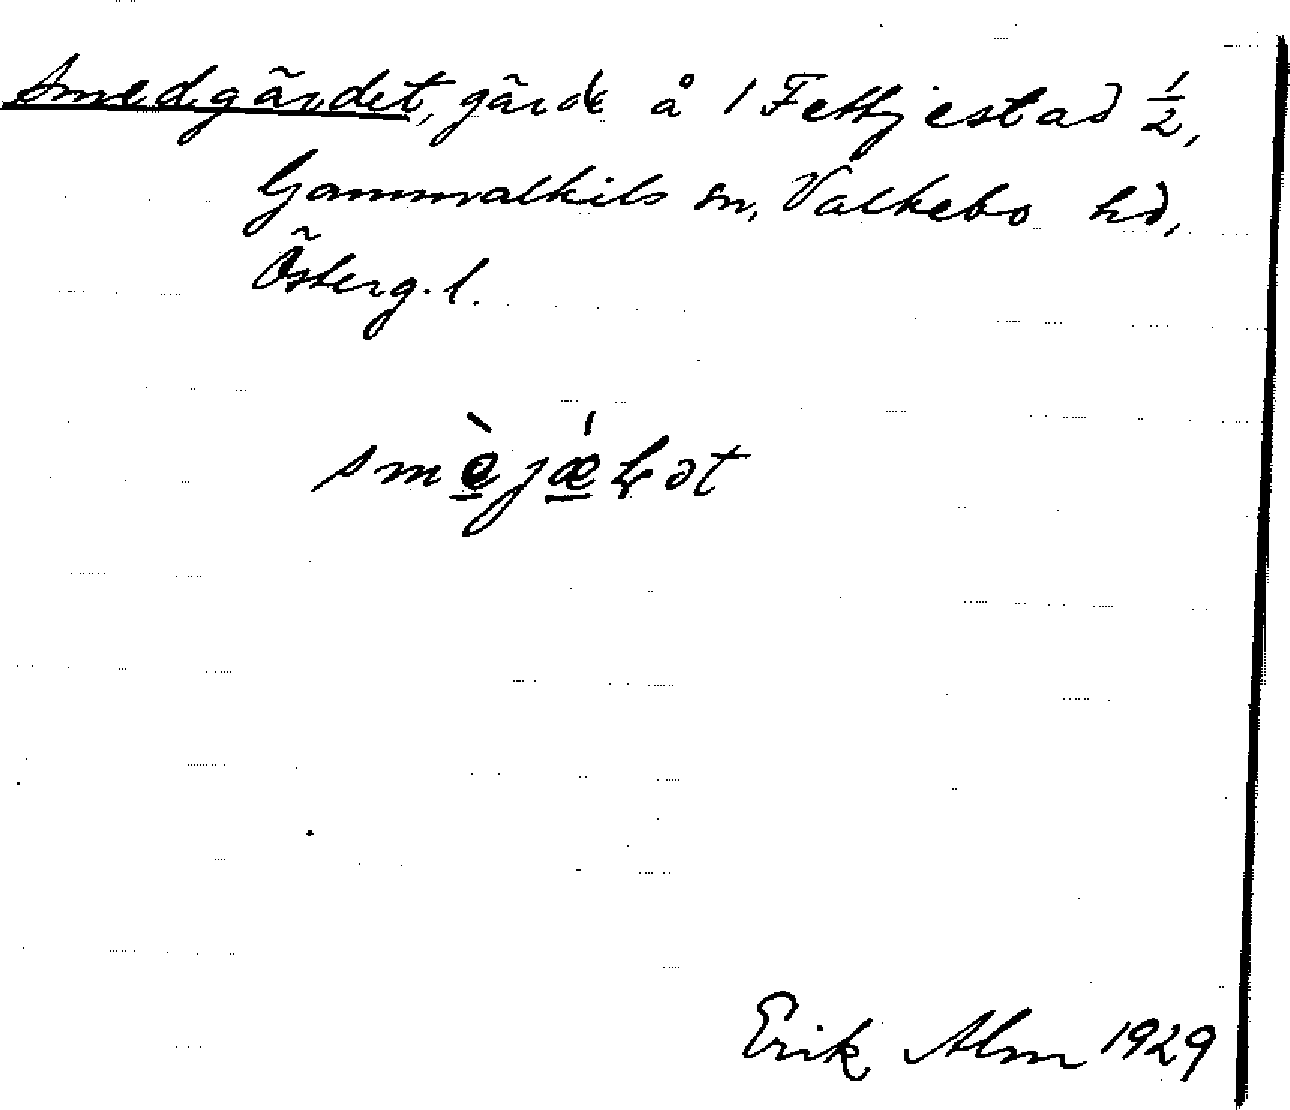 Smedgärdet, gärde å 1 Fettjestad 1/2,
Gammalkils sn, Valkebo hd,
Österg. l.
Erik Alm 1929